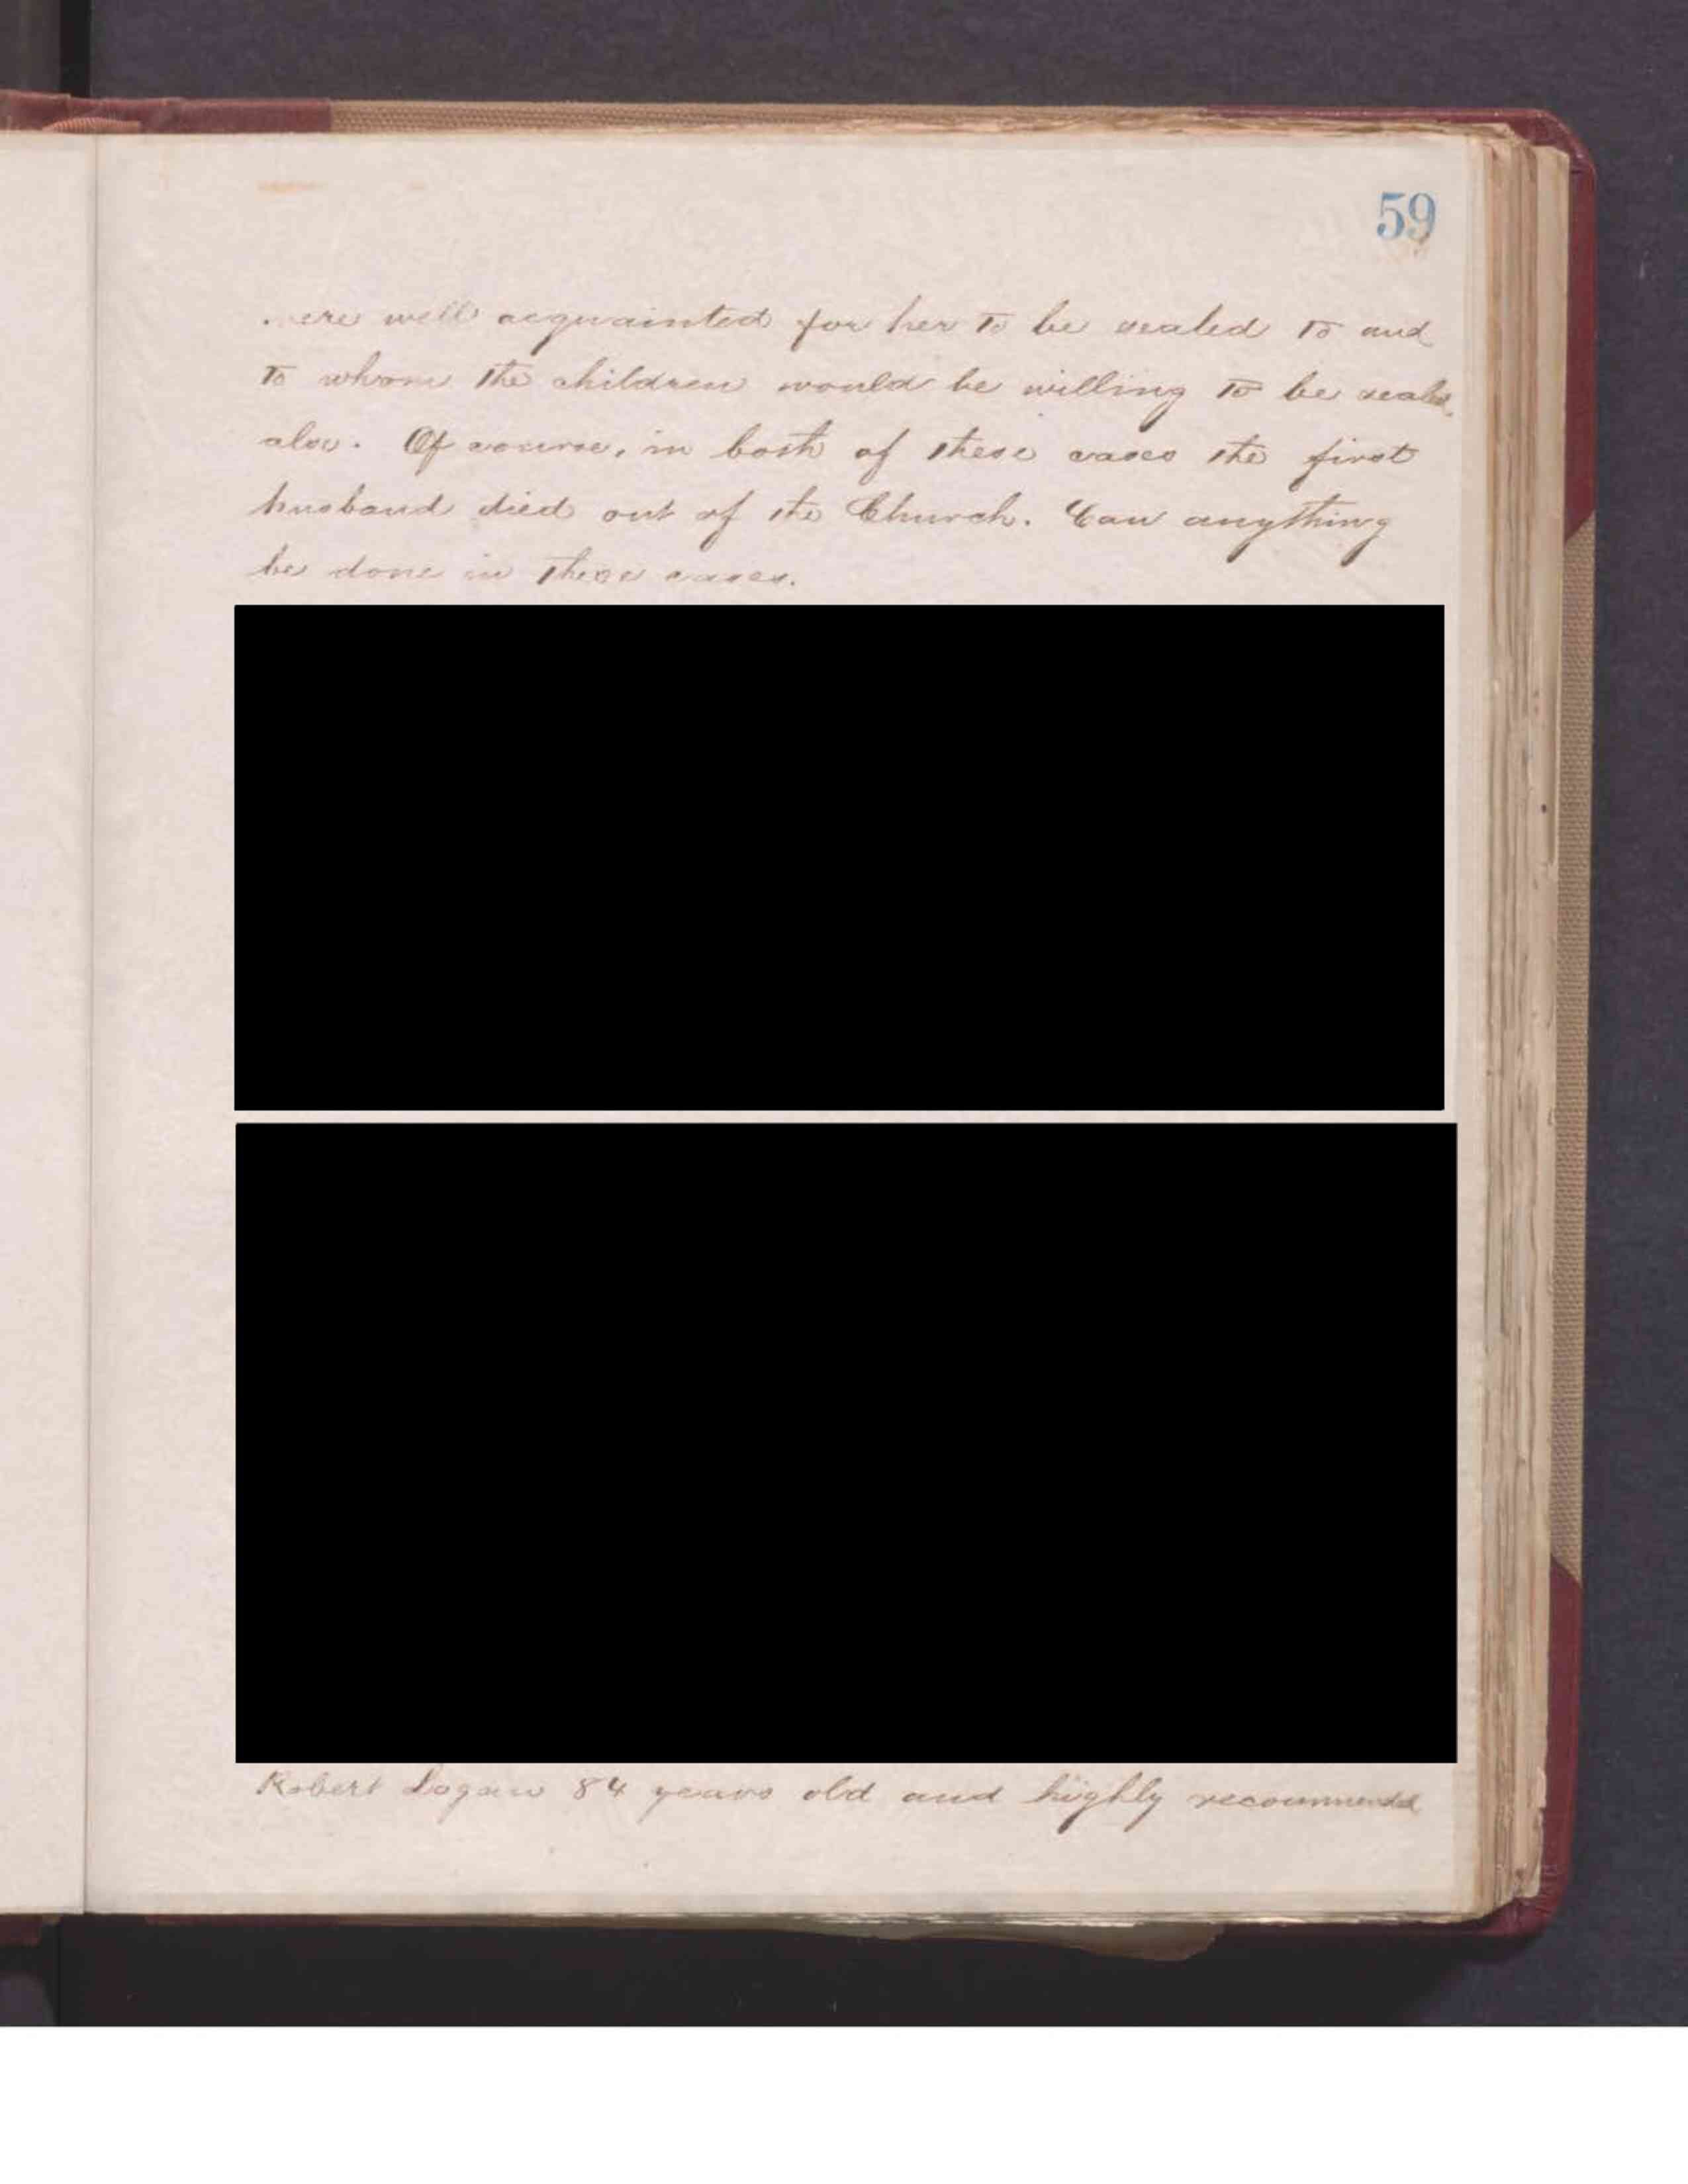 59
were well acquainted for her to be sealed to and
to whom the children would be willing to be sealed
also. Of course, in both of these cases the first
husband died out of the Church. Can anything
be done in these cases.
Robert Logan 84 years old and highly recommended